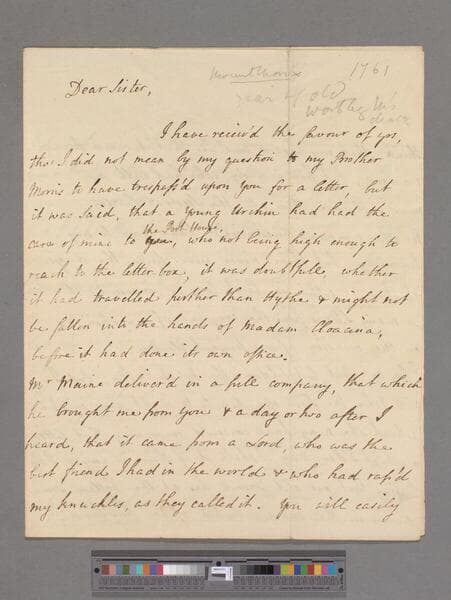 Mount Morris 1761
Dear Sister,
year of old
Wortley M's
death
I have reciev'd the favour of yrs,
tho' I did not mean by my question to my Brother
Morris to have trespass'd upon you for a letter, but
it was said, that a young Urchin had had the
the Post House,
care of mine to you, who not being high enough to
reach to the letter box, it was doubtfull, whether
it had travelled further than Hythe & might not
be fallen into the hands of Madam Cloacina,
before it had done its own office.
Mr Maine deliver'd in a full company, that which
he brought me from you & a day or two after I
heard, that it came from a Lord, who was the
best friend I had in the world & who had raps'd
my knuckles, as they called it. You will easily